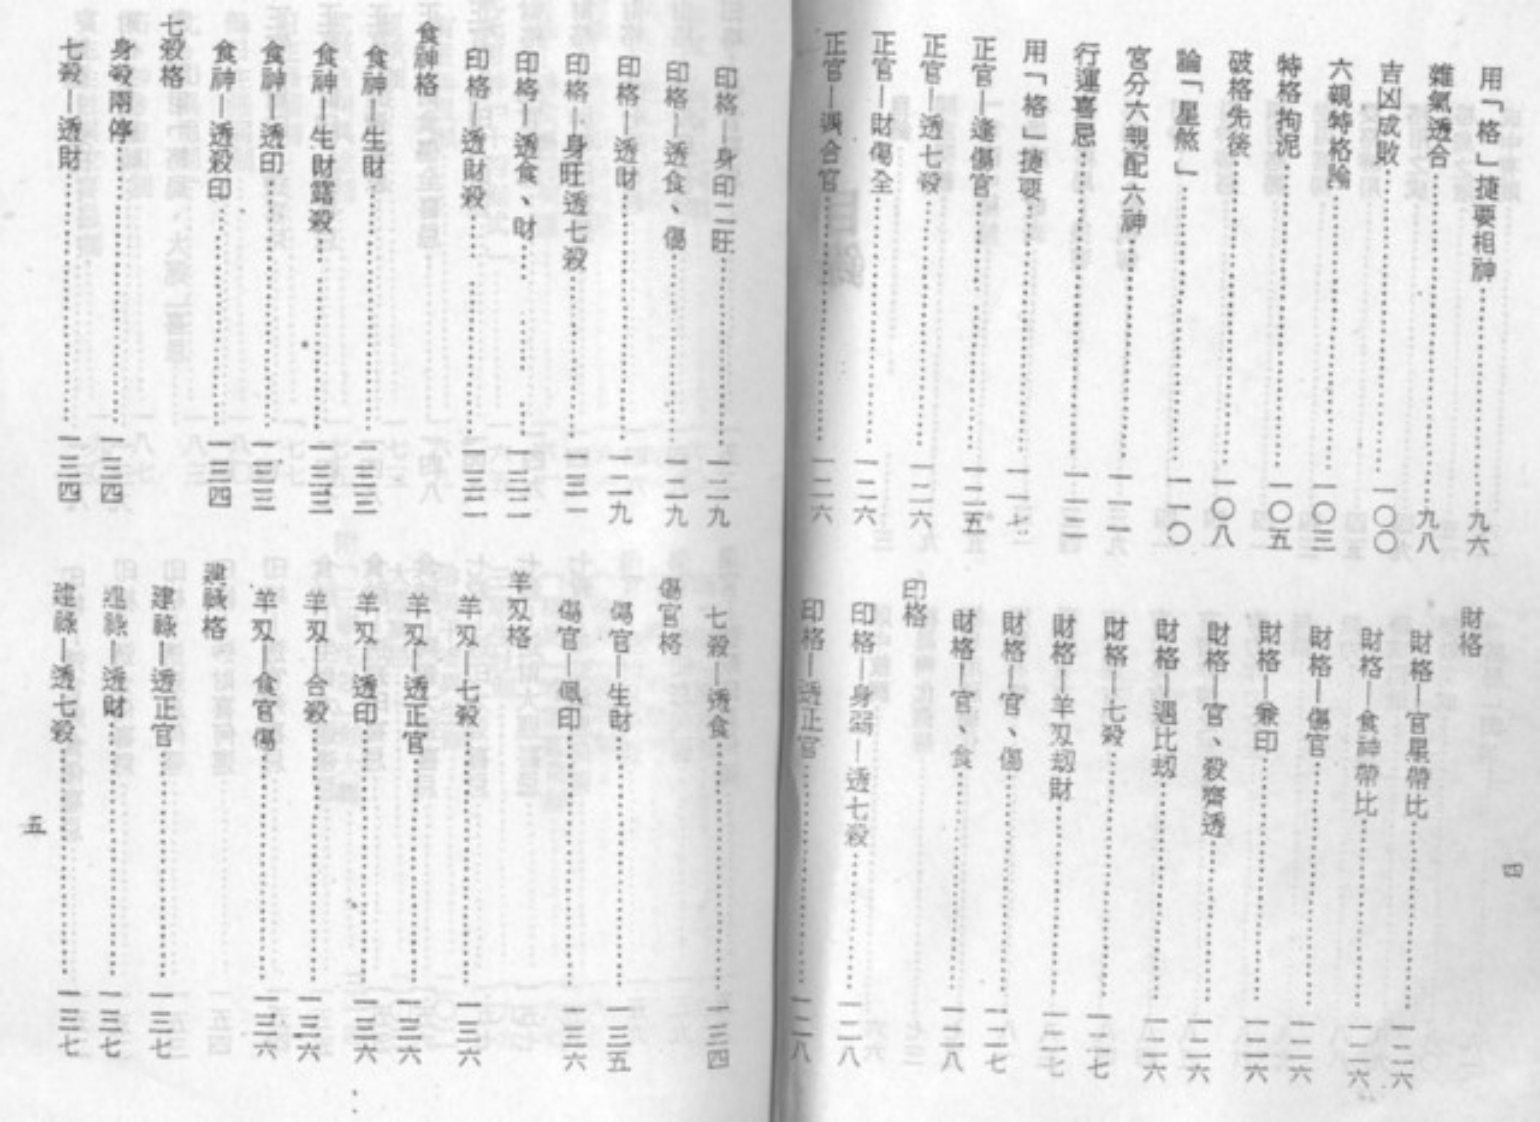 用「格」捷要相神⋯⋯九六
雜氣透合⋯⋯九八
吉凶成敗⋯⋯一〇〇
六親特格論⋯⋯一〇三
特格拘泥⋯⋯一〇五
破格先後⋯⋯一〇八
論「星煞」⋯⋯一一〇
宮分六親配六神⋯⋯一一一
行運喜忌⋯⋯一一二
用「格」捷要⋯⋯一一七
正官—逢傷官⋯⋯一二五
正官—透七殺⋯⋯一二六
正官—財傷全⋯⋯一二六
正官—遇合官⋯⋯一二六
財格
財格—官星帶比⋯⋯一二六
財格—食神帶比⋯⋯一二六
財格—傷官⋯⋯一二六
財格—兼印⋯⋯一二六
財格—官、殺齊透⋯⋯一二六
財格—遇比刼⋯⋯一二六
財格—七殺⋯⋯一二七
財格—羊刄刼財⋯⋯一二七
財格—官、傷⋯⋯一二七
財格—官、食⋯⋯一二八
印格
印格—身弱—透七殺⋯⋯一二八
印格—透正官⋯⋯一二八
四
印格—身印二旺⋯⋯一二九
印格—透食、傷⋯⋯一二九
印格—透財⋯⋯一二九
印格—身旺透七殺⋯⋯一三一
印格—透食、財⋯⋯一三二
印格—透財殺⋯⋯一三二
食神格
食神—生財⋯⋯一三三
食神—生財露殺⋯⋯一三三
食神—透印⋯⋯一三三
食神—透殺印⋯⋯一三四
七殺格
身殺兩停⋯⋯一三四
七殺—透財⋯⋯一三四
七殺—透食⋯⋯一三四
傷官格
傷官—生財⋯⋯一三五
傷官—佩印⋯⋯一三六
羊刄格
羊刄—七殺⋯⋯一三六
羊刄—透正官⋯⋯一三六
羊刄—透印⋯⋯一三六
羊刄—合殺⋯⋯一三六
羊刄—食官傷⋯⋯一三六
建祿格
建祿—透正官⋯⋯一三七
建祿—透財⋯⋯一三七
建祿—透七殺⋯⋯一三七
五